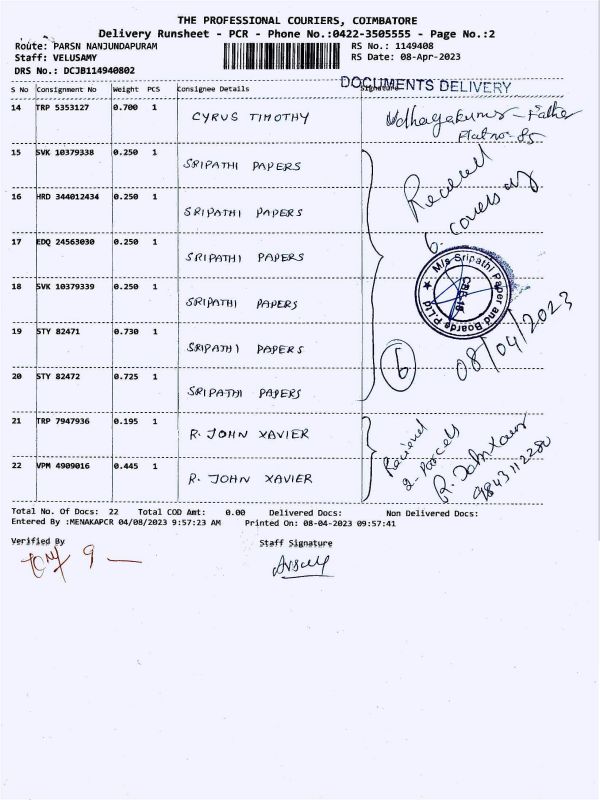 THE PROFESSIONAL COURIERS, COIMBATORE
Delivery Runsheet - PCR - Phone No.:0422-3505555 - Page No.:2
Route: PARSN NANJUNDAPURAM RS No.: 1149408
Staff: VELUSAMY RS Date: 08-Apr-2023
DRS No.: DCJB114940802
DOCUMENTS DELIVERY
S No Consignment No Weight PCS Consignee Details Signature
14 TRP 5353127 0.700 1 CYRUS TIMOTHY Udhayakumar - Father
Flat no- 85
15 SVK 10379338 0.250 1 SRIPATHI PAPERS
Received
16 HRD 344012434 0.250 1 SRIPATHI PAPERS
6. covers
17 EDQ 24563030 0.250 1 SRIPATHI PAPERS
M/s Sripathi Paper and Boards P.Ltd
18 SVK 10379339 0.250 1 SRIPATHI PAPERS
08/04/2023
19 STY 82471 0.730 1 SRIPATHI PAPERS
6
20 STY 82472 0.725 1 SRIPATHI PAPERS
21 TRP 7947936 0.195 1 R. JOHN XAVIER
Recieved
2- Parcels
R. John Xavier
22 VPM 4909016 0.445 1 R. JOHN XAVIER
9843112280
Total No. Of Docs: 22 Total COD Amt: 0.00 Delivered Docs: Non Delivered Docs:
Entered By :MENAKAPCR 04/08/2023 9:57:23 AM Printed On: 08-04-2023 09:57:41
Verified By Staff Signature